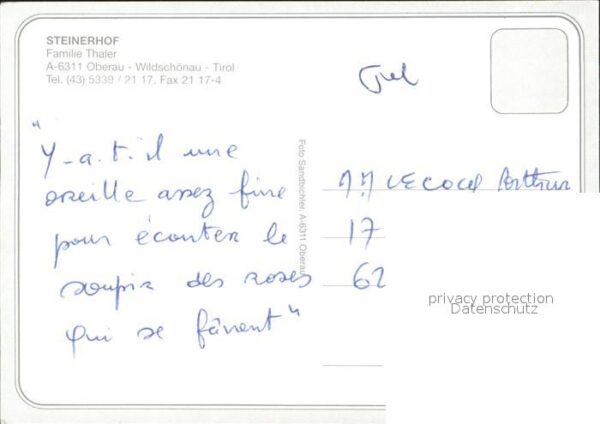 STEINERHOF
Familie Thaler
A-6311 Oberau - Wildschönau - Tirol
Tel. (43) 5339 / 21 17, Fax 21 17-4
"Y-a-t-il une
oreille assez fine
pour écouter le
soupir des roses
qui se fânent"
Foto Sandbichler, A-6311 Oberau
LECOCQ Arthur
17
62
privacy protection
Datenschutz